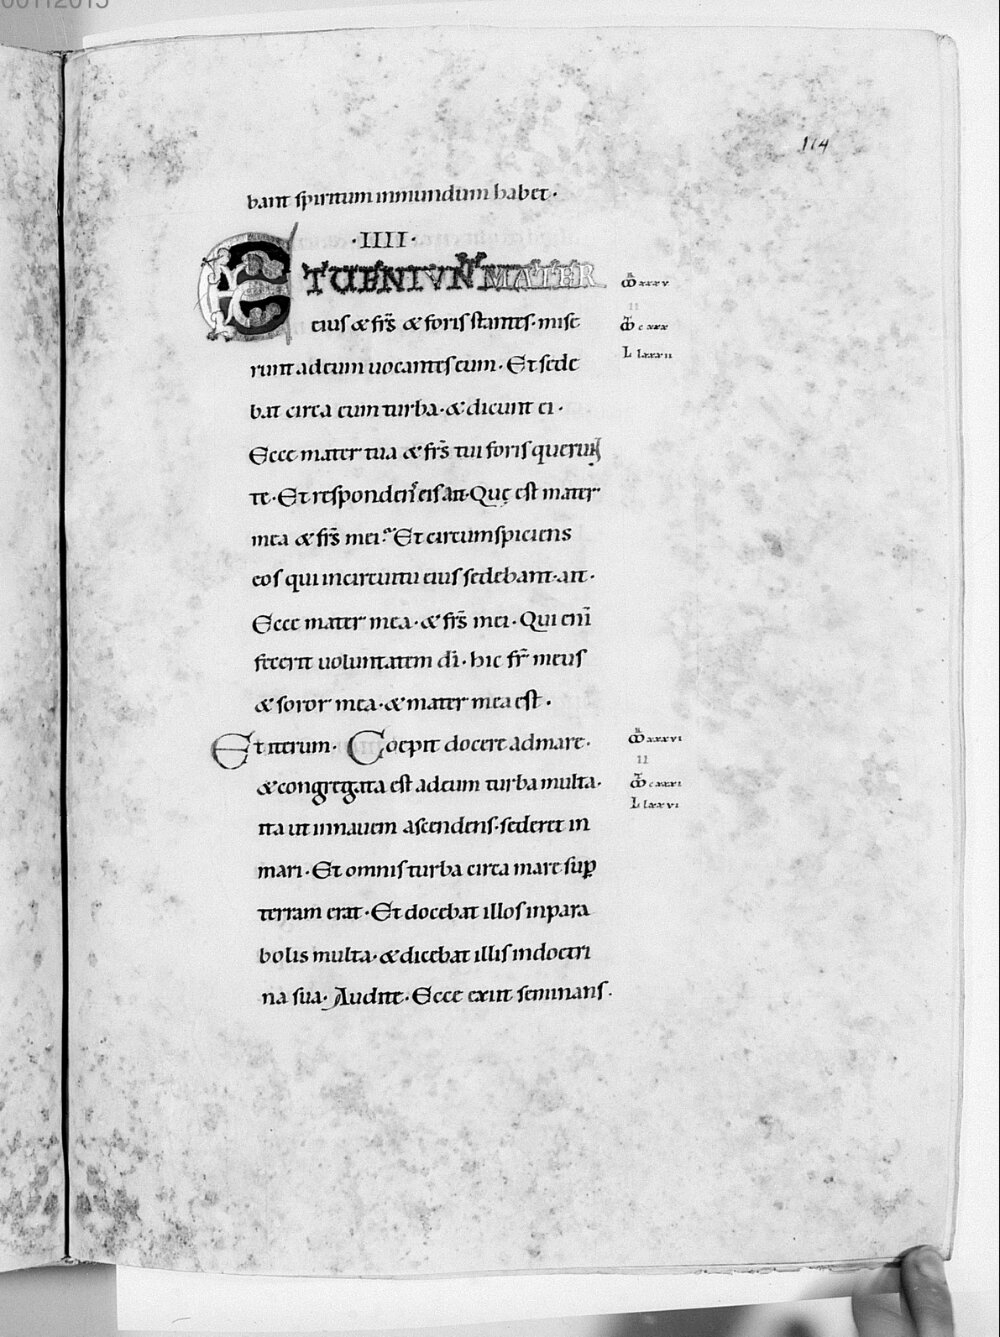 114
bant spiritum inmundum habet·
·IIII·
ET UENIUNT MATER
eius & frs̄ & foris stantes· mise
runt ad eum uocantes eum· Et sede
bat circa eum turba· & dicunt ei·
Ecce mater tua & frs̄ tui foris querunt
te· Et responden̄s eis ait· Quę est mater
mea & frs̄ mei? Et circumspiciens
eos qui in circuitu eius sedebant· ait·
Ecce mater mea· & frs̄ mei· Qui eni͂
fecerit uoluntatem dī· hic fr̄ meus
& soror mea· & mater mea est·
Et iterum· Coepit docere ad mare·
& congregata est ad eum turba multa·
ita ut in nauem ascendens· sederet in
mari· Et omnis turba circa mare suꝑ
terram erat· Et docebat illos in para
bolis multa· & dicebat illis in doctri
na sua· Audite· Ecce exiit seminans·
xxxv
II
cxxx
L lxxxii
xxxvi
II
cxxxi
L lxxvi